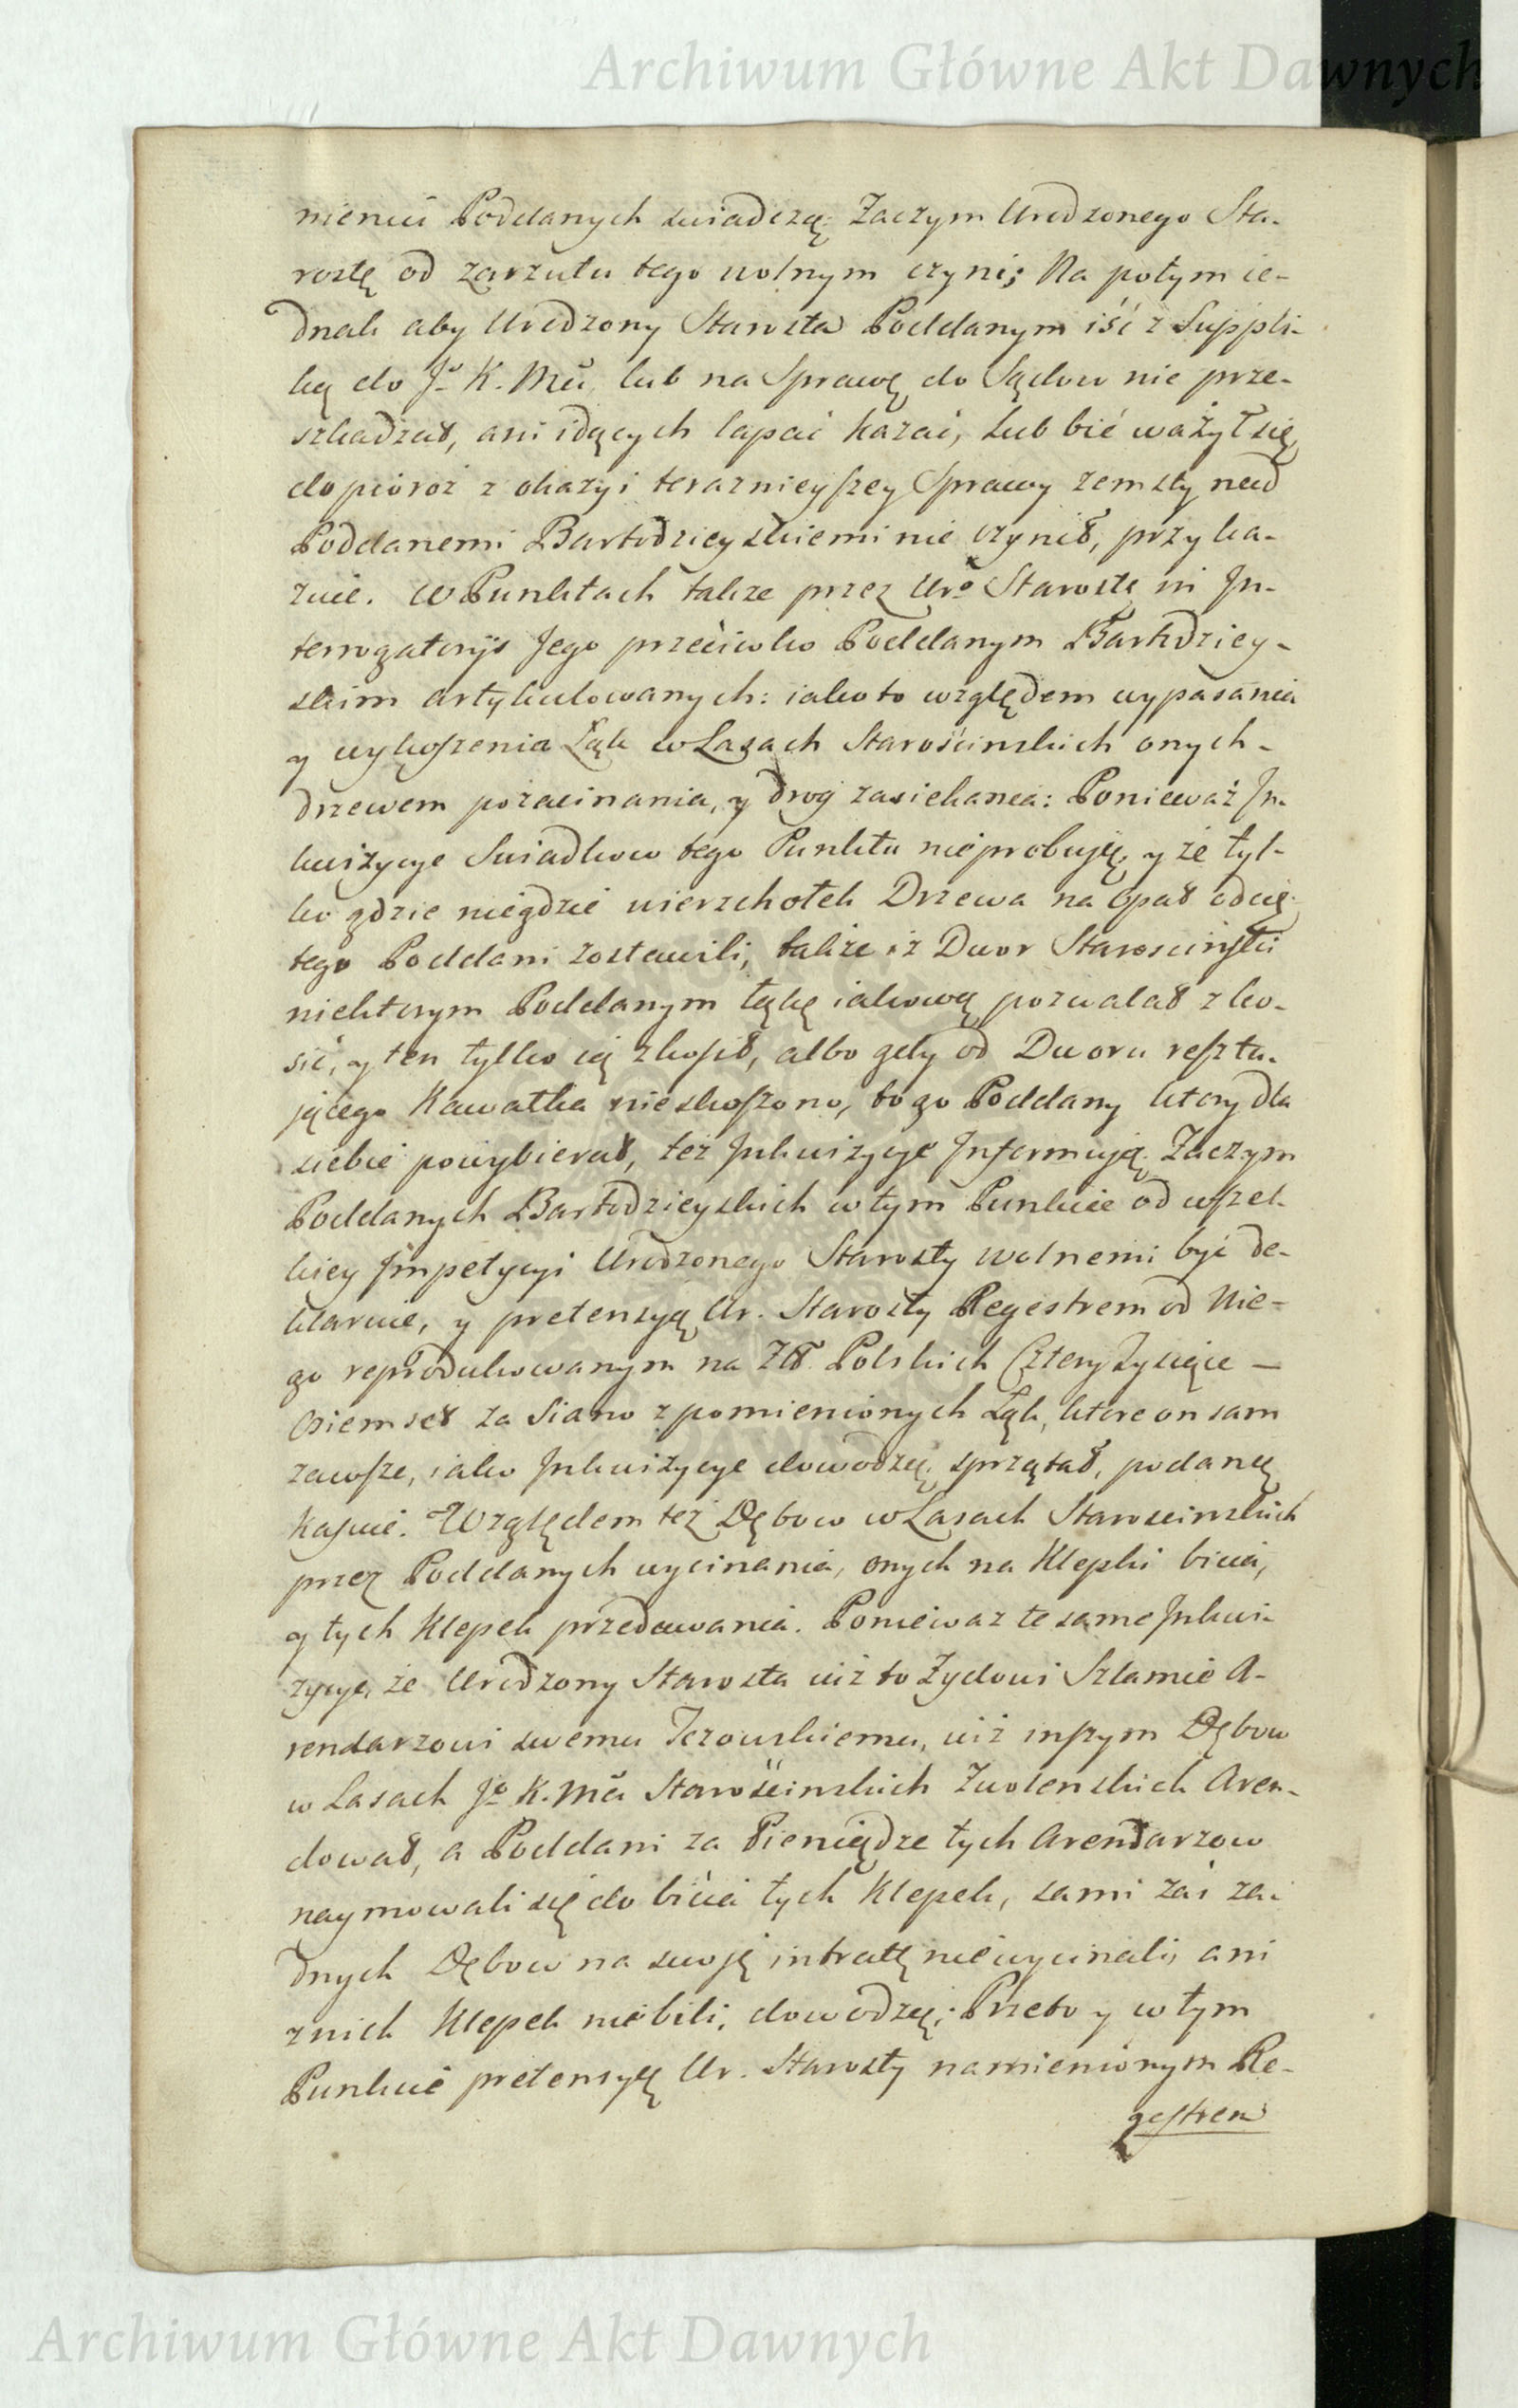 Archiwum Główne Akt Dawnych
nieniu Poddanych swiadczą: Zaczym Urodzonego Sta-
rostę od zarzutu tego wolnym czyni; Na potym ie-
dnak aby Urodzony Starosta Poddanym iść z Suppli-
ką do Jº K. Mci lub na Sprawę do Sądow nie prze-
szkadzał, ani idących łapać kazać, lub bić ważył się
dopioroż z okazyi terazniejszey Sprawy zemsty nad
Poddanemi Bartodzieyskiemi nie czynił, przyka-
zuie. W Punktach także przez Urº Starostę in In-
terrogatorijs Jego przeciwko Poddanym Bartodziey-
skim artykułowanych: iako to względem wypasania
y wykoszenia Łąk w Lasach Starościnskich onych-
drzewem pozacinania, y drog zasiekania: Ponieważ In-
kwizycye Swiadkow tego Punktu nie probują, y że tyl-
ko gdzie niegdzie wierzchołek Drzewa na opał odcię-
tego Poddani zostawili, także iż Dwor Starosciński
niektorym Poddanym łąkę iakową pozwalał zko-
sić, y ten tylko ią zkosił, albo gdy od Dworu reszta-
jącego Kawałka nie skoszono, to go Poddany ktory dla
siebie powybierał, też Inkwizycye Informują. Zaczym
Poddanych Bartodzieyskich w tym Punkcie od wszel-
kiey Impetycyi Urodzonego Starosty wolnemi być de-
klaruie, y pretensyą Ur. Starosty Regestrem od Nie-
go reprodukowanym na Zł Polskich Cztery Tysiące —
Osiemset za Siano z pomienionych Łąk, ktore on sam
zawsze, iako Inkwizycye dowodzą, sprzątał, podaną
kasuie. Względem też Dębow w Lasach Staroscinskich
przez Poddanych wycinania, onych na Klepki bicia,
y tych Klepek przedawania. Poniewaz te same Inkwi-
zycye, że Urodzony Starosta iuż to Żydowi Szlamie A-
rendarzowi swemu Jezowskiemu, iuż inszym Dębow
w Lasach Jº K. Mci Starościnskich Zwolenskich Aren-
dował, a Poddani za Pieniądze tych Arendarzow
naymowali się do bicia tych Klepek, sami zaś ża-
dnych Dębow na swoję intratę nie wycinali, ani
z nich Klepek nie bili, dowodzą; Przeto y w tym
Punkcie pretensyą Ur. Starosty namienionym Re-
gestrem
Archiwum Główne Akt Dawnych